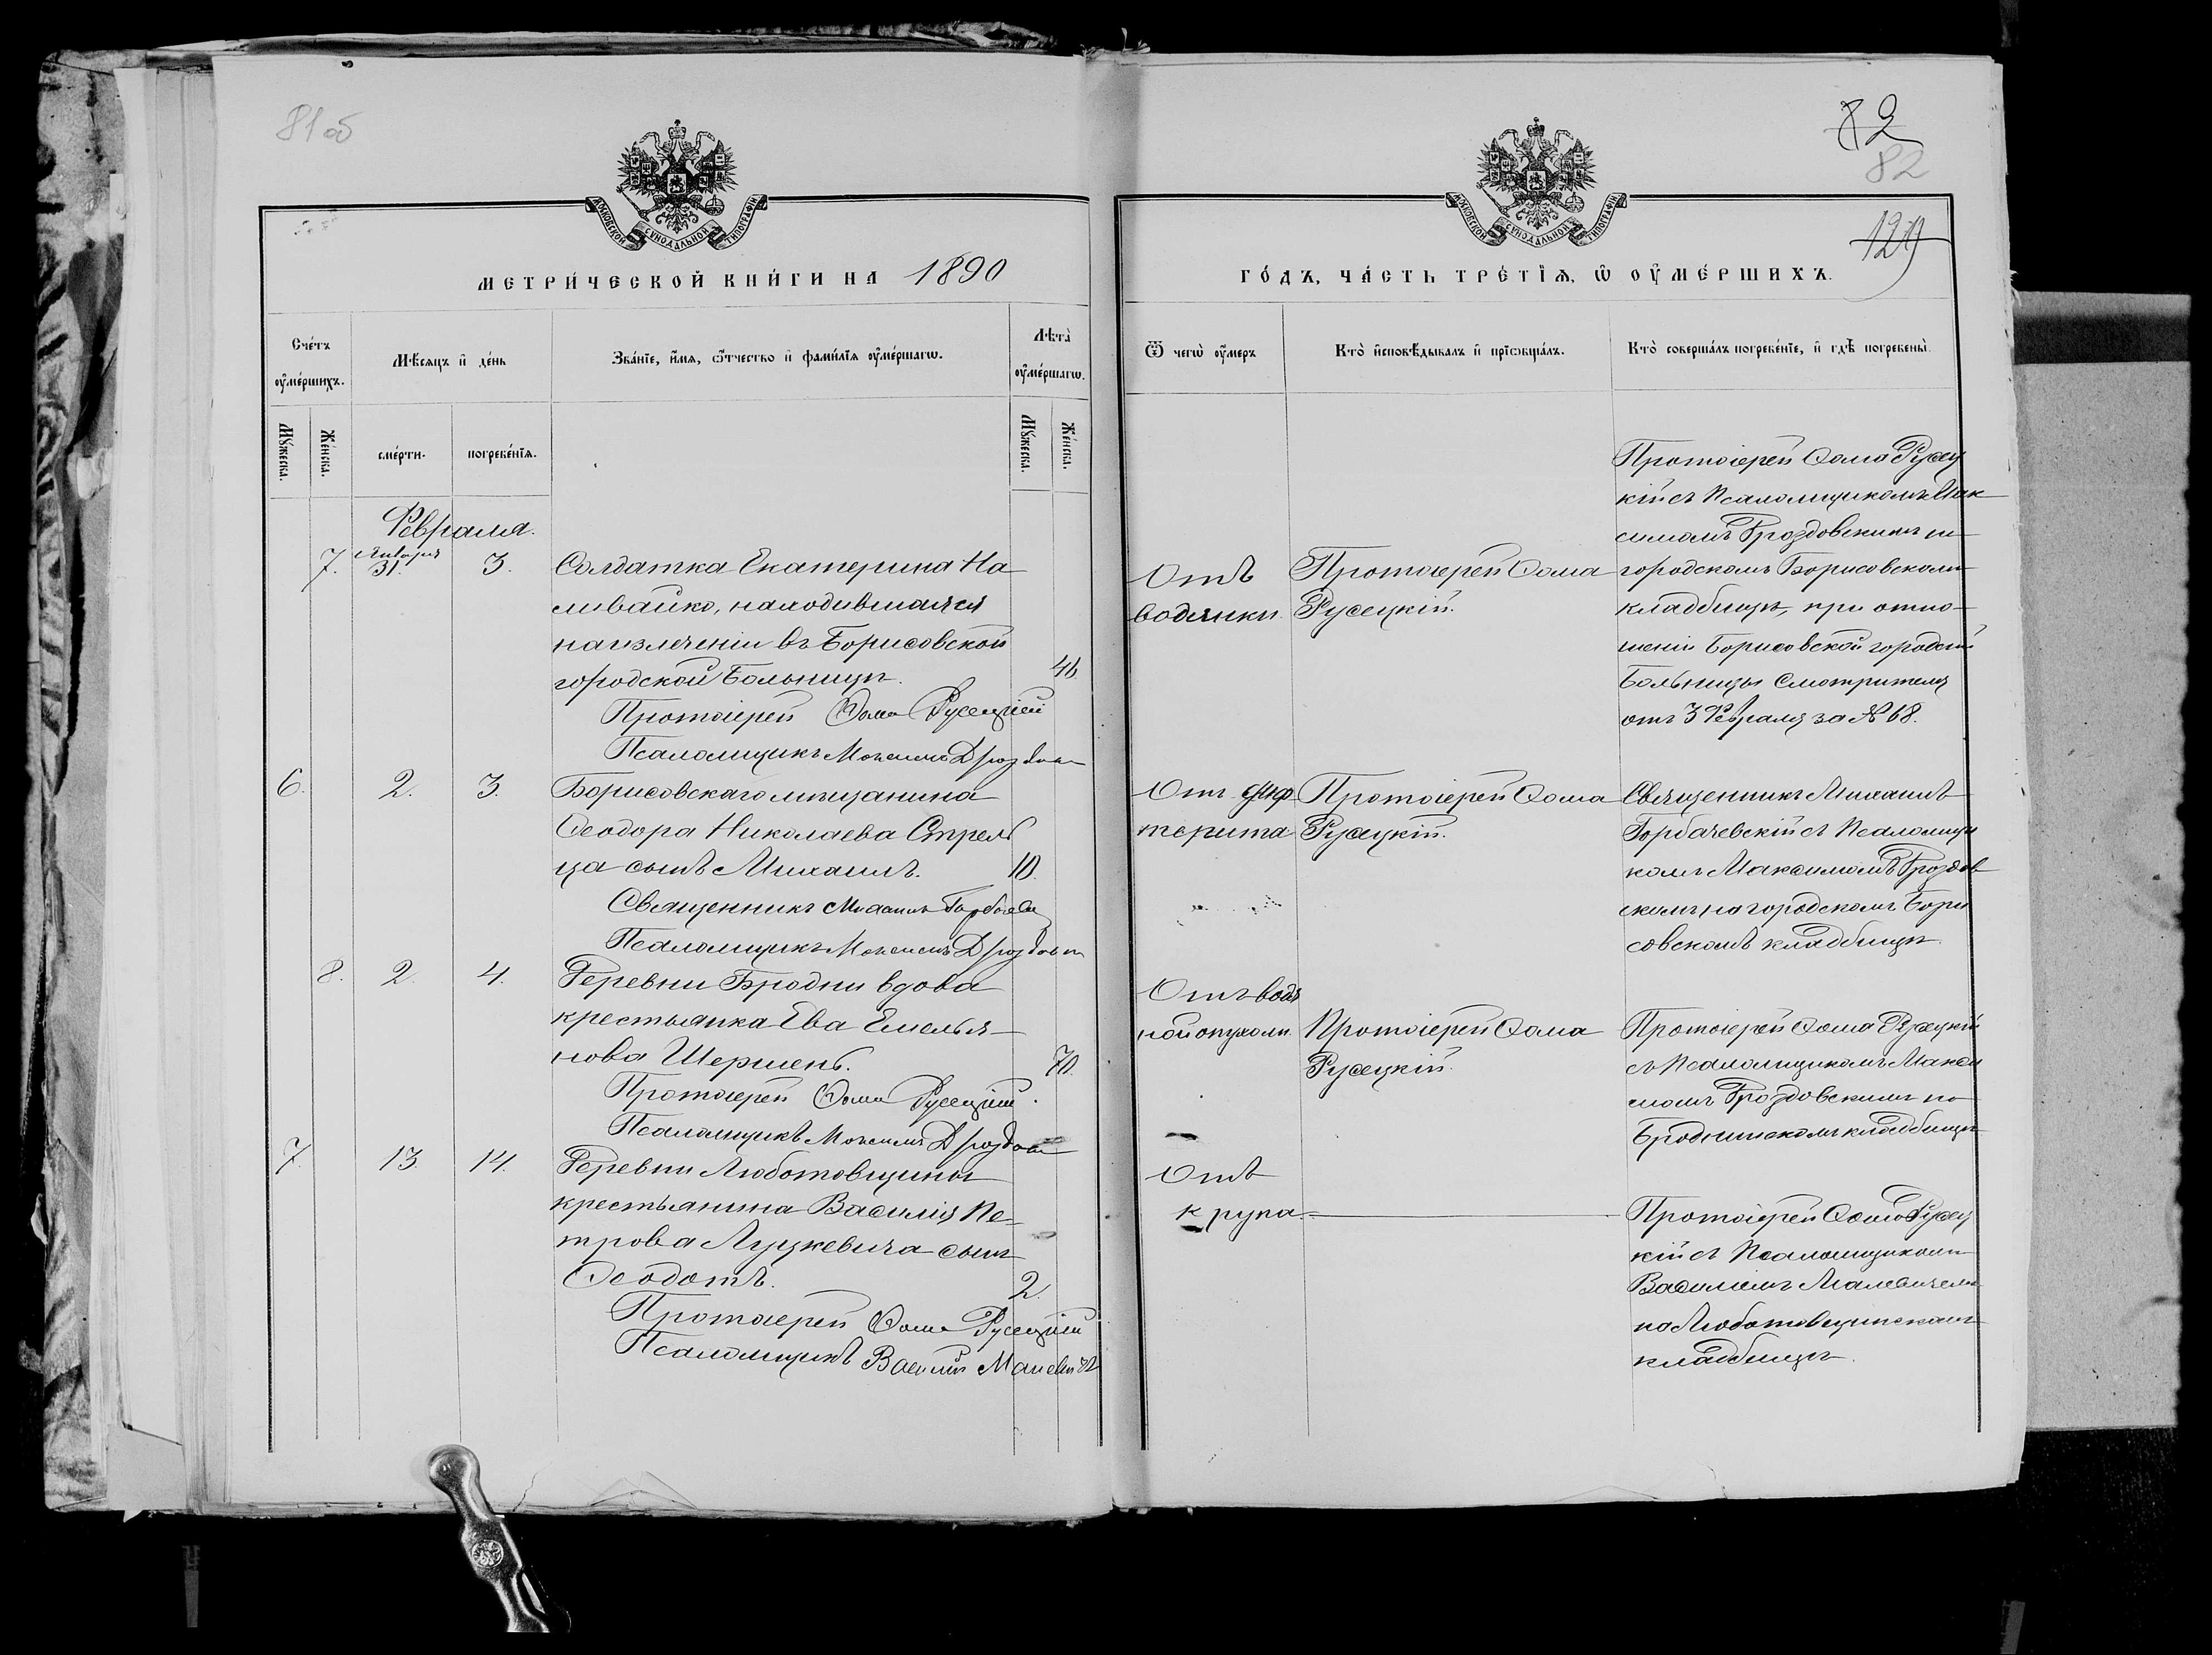 81 об
МОСКОВСКОЙ СѴНОДАЛЬНОЙ ТИПОГРАФІИ
МЕТРИ́ЧЕСКОЙ КНИ́ГИ НА 1890
Сче́тъ ᲂу҆ме́ршихъ.
Мѣ́сяцъ и҆ де́нь
Зва́нїе, и҆́мя, ѻ҆́тчество и҆ фами́лїя ᲂу҆ме́ршагѡ.
Лѣта̀ ᲂу҆ме́ршагѡ.
Мꙋ́жеска.
Же́нска.
сме́рти.
погребе́нїя.
Мꙋ́жеска.
Же́нска.
Февраля.
7. Января 31. 3. Солдатка Екатерина На
ливайко, находившаяся
на излеченіи въ Борисовской
городской Больницѣ. 46
Протоіерей Ѳома Русецкій
Псаломщикъ Максимъ Дроздов
6. 2. 3. Борисовскаго мѣщанина
Ѳеодора Николаева Стрель
ца сынъ Михаилъ. 10.
Священникъ Михаилъ Горбачев
Псаломщикъ Максимъ Дроздов
8. 2. 4. Деревни Бродни вдова
крестьянка Ева Емелья-
нова Шершень. 70.
Протоіерей Ѳома Русецкій.
Псаломщикъ Максимъ Дроздов
7. 13. 14. Деревни Любатовщины
крестьянина Василія Пе-
трова Луцкевича сынъ
Ѳеодотъ. 2.
Протоіерей Ѳома Русецкій
Псаломщикъ Василій Малевичъ
82
82
129
МОСКОВСКОЙ СѴНОДАЛЬНОЙ ТИПОГРАФІИ
ГО́ДЪ, ЧА́СТЬ ТРЕ́ТЇѦ, Ѡ҆ ОУ҆МЕ́РШИХЪ.
Ѿ чегѡ̀ ᲂу҆́меръ
Кто̀ и҆сповѣ́дывалъ и҆ прїѡбща́лъ.
Кто̀ соверша́лъ погребе́нїе, и҆ гдѣ̀ погребены̀.
Отъ
водянки.
Протоіерей Ѳома
Русецкій.
Протоіерей Ѳома Русец
кій съ Псаломщикомъ Мак
симомъ Дроздовскимъ на
городскомъ Борисовскомъ
кладбищѣ, при отно-
шеніи Борисовской городской
Больницы Смотрителя
отъ 3 Февраля за № 68.
Отъ диф
терита
Протоіерей Ѳома
Русецкій.
Священникъ Михаилъ
Горбачевскій съ Псаломщи
комъ Максимомъ Дроздов
скимъ, на городскомъ Бори
совскомъ кладбищѣ.
Отъ водя
ной опухоли.
Протоіерей Ѳома
Русецкій.
Протоіерей Ѳома Русецкій
съ Псаломщикомъ Макси
момъ Дроздовскимъ на
Броднинскомъ кладбищѣ
Отъ
крупа.
Протоіерей Ѳома Русец
кій съ Псаломщикомъ
Василіемъ Малевичемъ
на Любатовщинскомъ
кладбищѣ.